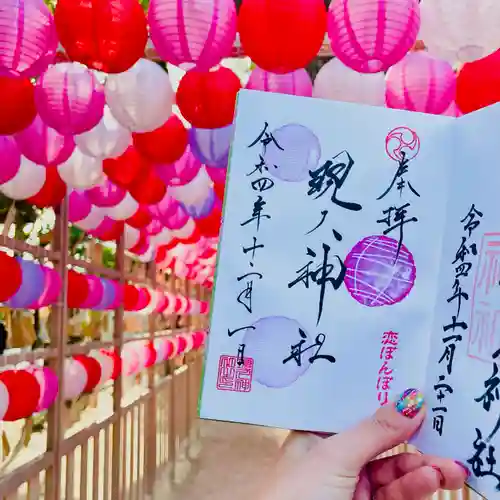 奉拝
現人神社
恋ぼんぼり
令和四年十二月一日
令和四年十一月二十一日
神社